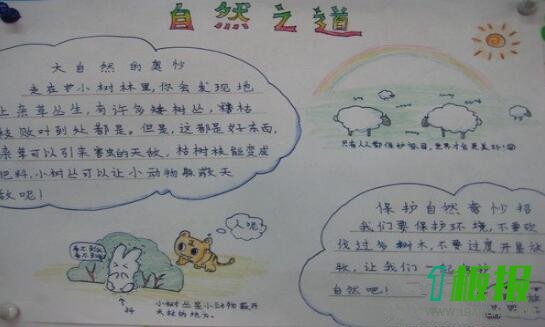 自然之道
大自然的奥妙
走在小树林里,你会发现地
上杂草丛生,有许多矮树丛,枯
枝败叶到处都是。但是,这都是好东西,
杂草可以引来害虫的天敌,枯树枝能变成
肥料,小树丛可以让小动物躲敌天
敌呢!
只有人人都保护环境,世界才会更美好!
人呢?
看不到我
看不到我
小树丛是小动物躲开
天敌的地方。
保护自然奇妙招
我们要保护环境,不要砍
伐过多树木,不要过度开垦放
牧,让我们一起
自然吧!
板报